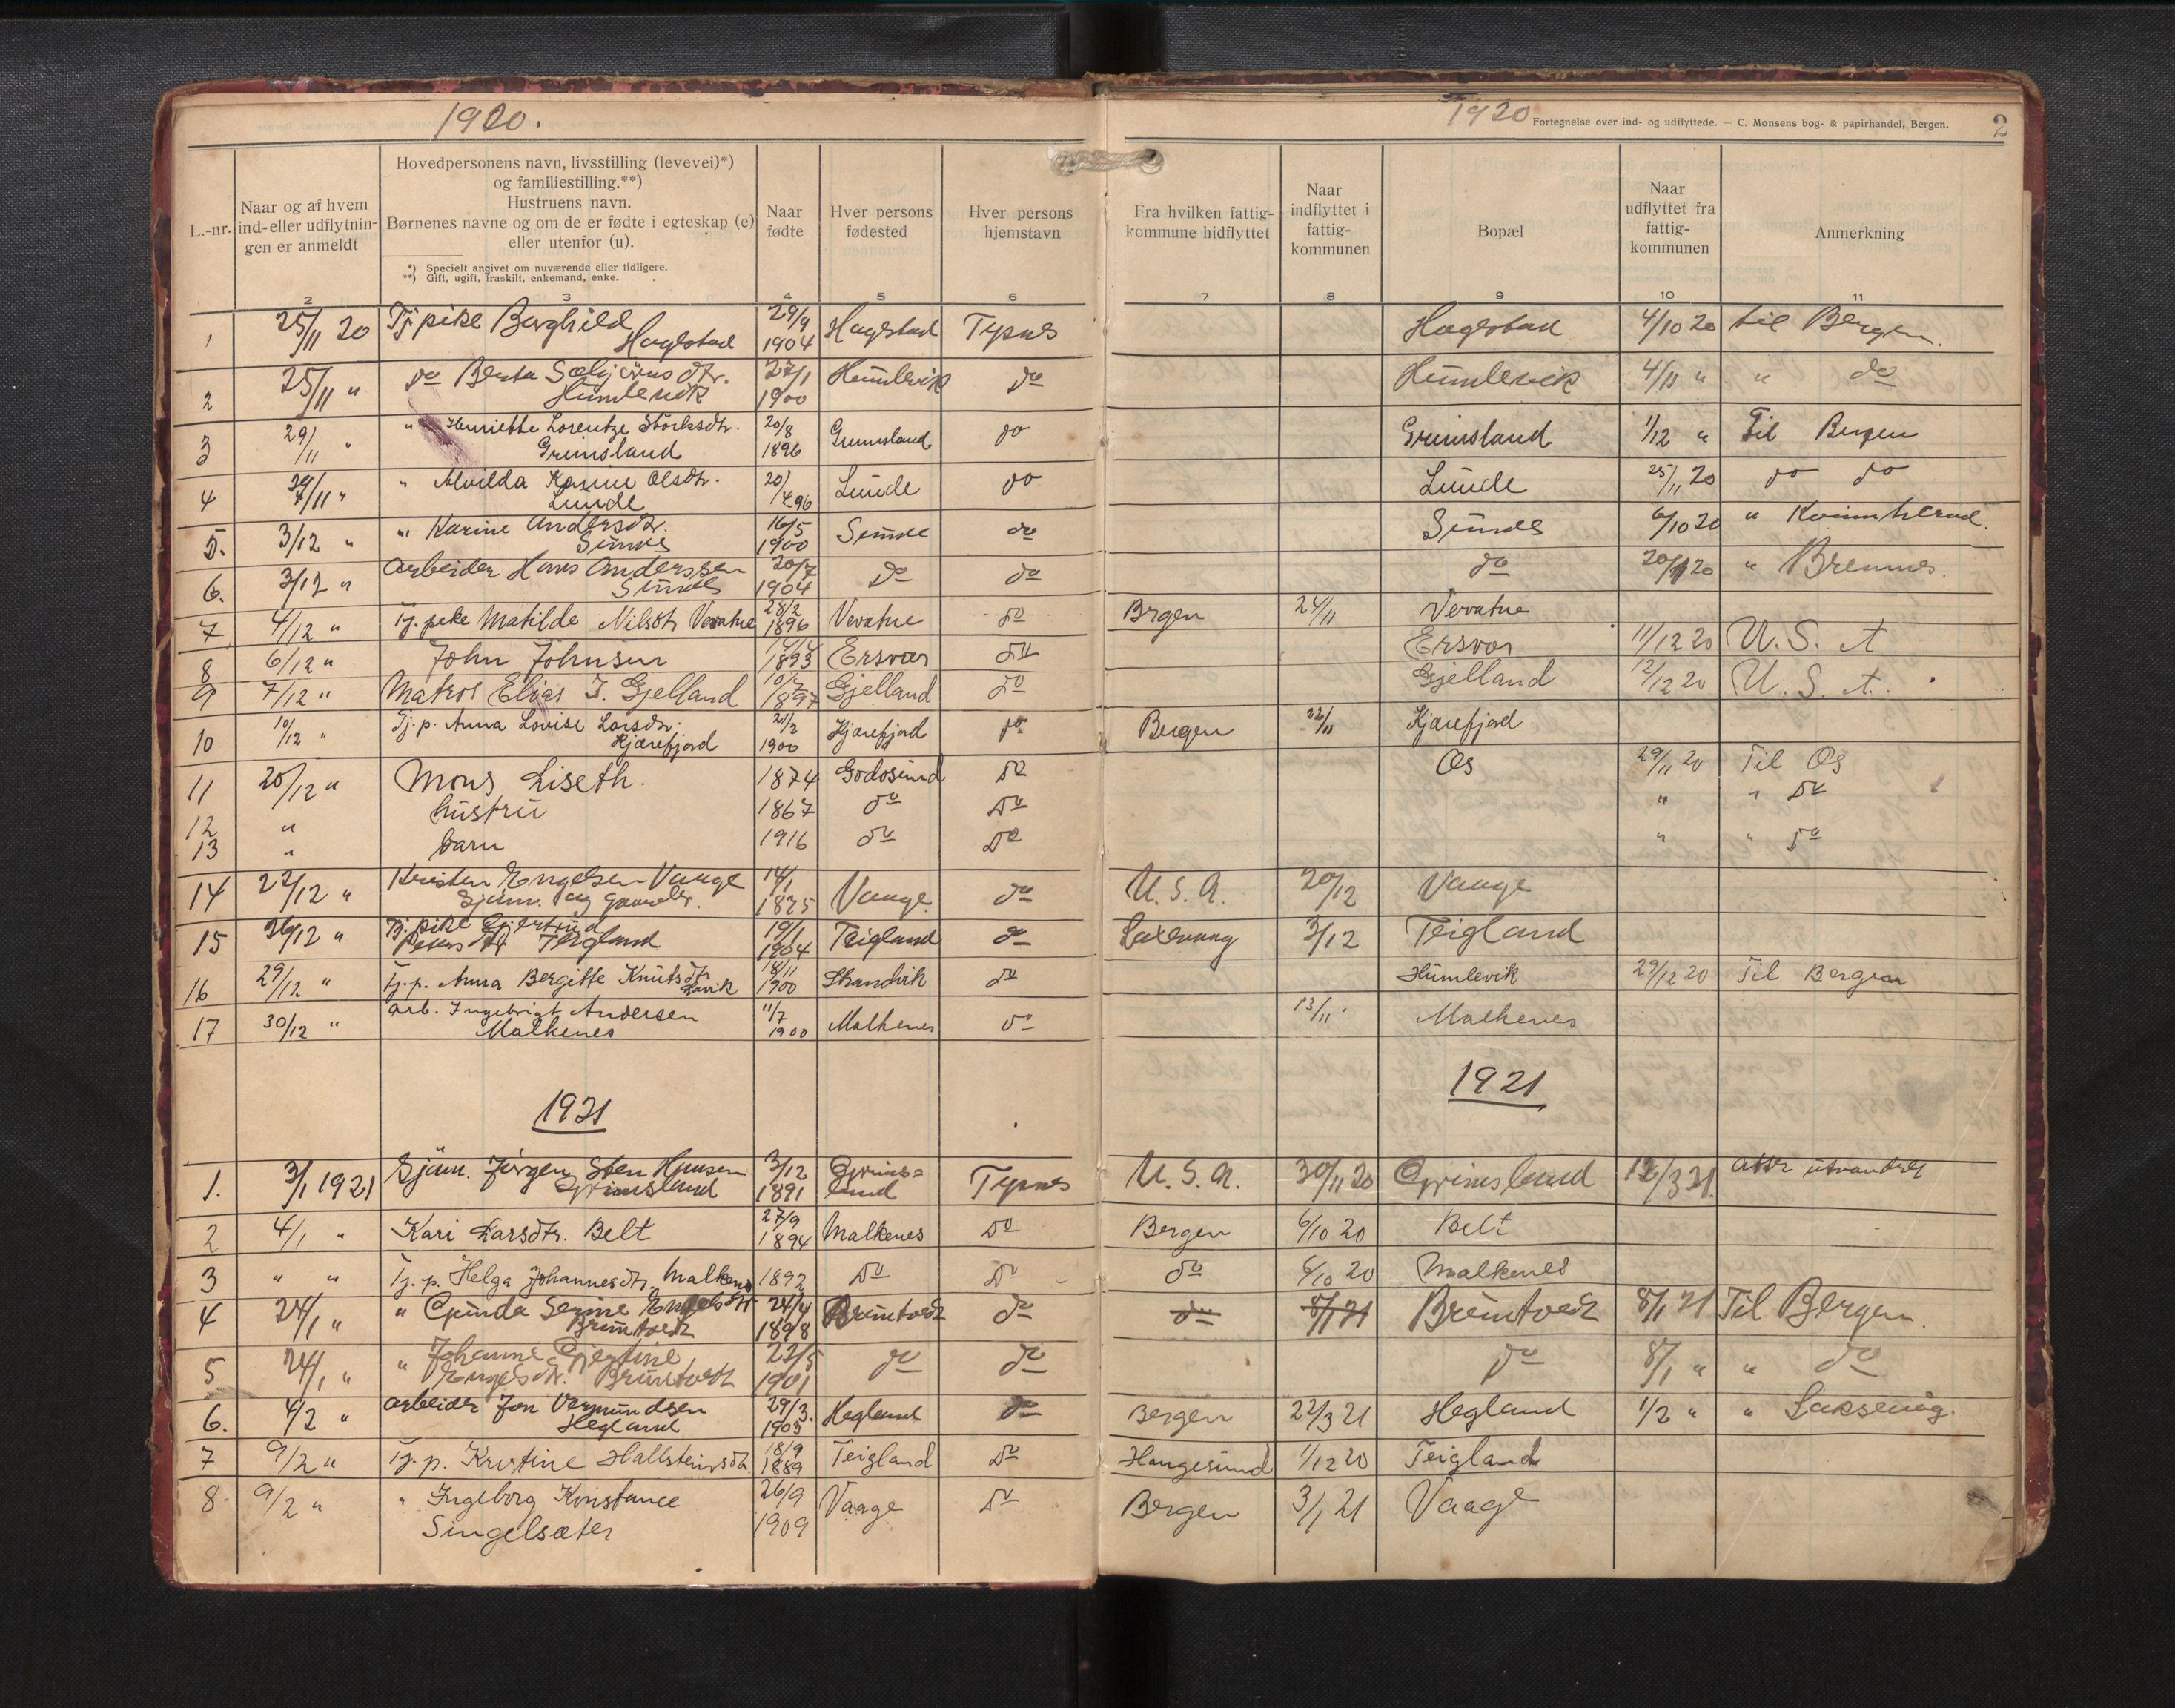 1920.
1920
Fortegnelse over ind- og udflyttede. — C. Monsens bog- & papirhandel, Bergen.
2
L.-nr.
Naar og af hvem ind- eller udflytningen er anmeldt
Hovedpersonens navn, livsstilling (levevei)*)
og familiestilling.**)
Hustruens navn.
Børnenes navne og om de er fødte i egteskap (e)
eller utenfor (u).
*) Specielt angivet om nuværende eller tidligere.
**) Gift, ugift, fraskilt, enkemand, enke.
Naar fødte
Hver persons fødested
Hver persons hjemstavn
Fra hvilken fattig-kommune hidflyttet
Naar indflyttet i fattig-kommunen
Bopæl
Naar udflyttet fra fattig-kommunen
Anmerkning
2 3 4 5 6 7 8 9 10 11
1 25/11 20 Tj pike Borghild Hagestad 29/9 1904 Hagestad Tysnes Hagestad 4/10 20 til Bergen.
2 25/11 " do Berta Sæbjörns dtr. Humlevik 27/1 1900 Humlevik do Humlevik 4/11 " " do
3 29/11 " " Henriette Lorentze Störksdtr. Grimsland 20/8 1896 Grimsland do Grimsland 1/12 " Til Bergen
4 29/11 " " Alvilda Karine Olsdtr. Lunde 20/4 96 Lunde do Lunde 25/11 20 do do
5. 3/12 " " Karine Andersdtr. Sunde 16/5 1900 Sunde do Sunde 6/10 20 " Kvinnherad.
6. 3/12 " Arbeider Hans Anderssen Sunde 20/7 1904 Do do do 20/11 20 " Bremnes.
7 4/12 " Tj. pike Matilde Nilsdtr Vevatne 28/2 1896 Vevatne do Brgen 24/11 Vevatne
8 6/12 " John Johnsen 1893 Ersvær do Ersvær 11/12 20 U. S. A
9 7/12 " Matros Elias J. Gjelland 10/7 1897 Gjelland do Gjelland 12/12 20 U. S. A.
10 10/12 " Tj. p. Anna Lovise Larsdtr. Kjærefjord 21/2 1900 Kjærefjord do Bergen 22/11 Kjærefjord
11 20/12 " Mons Liseth. 1874 Godosund do Os 29/11 20 Til Os
12 " hustru 1867 do do " " do
13 " barn 1916 do do " " do
14 22/12 " Kristen Engelsen Vaage Sjöm. og 14/1 1875 Vaage do U. S. A. 20/12 Vaage
15 26/12 " Tj. pike Gjertrud Peters dtr Teigland 19/1 1904 Teigland do Laxevaag 3/12 Teigland
16 29/12 " Tj. p. Anna Bergitte Knutsdtr 18/11 1900 Strandvik do Humlevik 29/12 20 Til Bergen
17 30/12 " Arb. Ingebrigt Andersen Malkenes 11/7 1900 Malkenes do 13/11. Malkenes
1921
1921
1. 3/1 1921 Sjöm. Jörgen Sten Hansen Grimsland 3/12 1891 Grims= land Tysnes U. S. A. 30/11 20 Grimsland 12/3 21. atter utvandret
2 4/1 " Kari Larsdtr. Belt 27/9 1894 Malkenes do Bergen 6/10 20 Belt
3 " " Tj. p. Helga Johannesdtr. Malkenes 1892 do do do 6/10 20 Malkenes
4 24/1 " " Gunda Serine Engelsdtr Bruntvedt 24/4 1898 Bruntvedt do do 8/1 21 Bruntvedt 8/1 21 Til Bergen.
5 24/1 " " Johanne Gjertine Engelsdtr. Bruntvedt 22/5 1901 do do do 8/1 " " do
6. 4/2 " Arbeider Jon Vermundsen Hegland 29/3. 1903 Hegland do Bergen 22/3 21 Hegland 1/2 " " Laksevåg.
7 9/2 " Tj. p. Kristine Hallsteinsdtr. 18/9 1889 Teigland do Haugesund 1/12 20 Teigland
8 9/2 " " Ingeborg Konstance Singelsæter 26/9 1909 Vaage do Bergen 3/1 21 Vaage